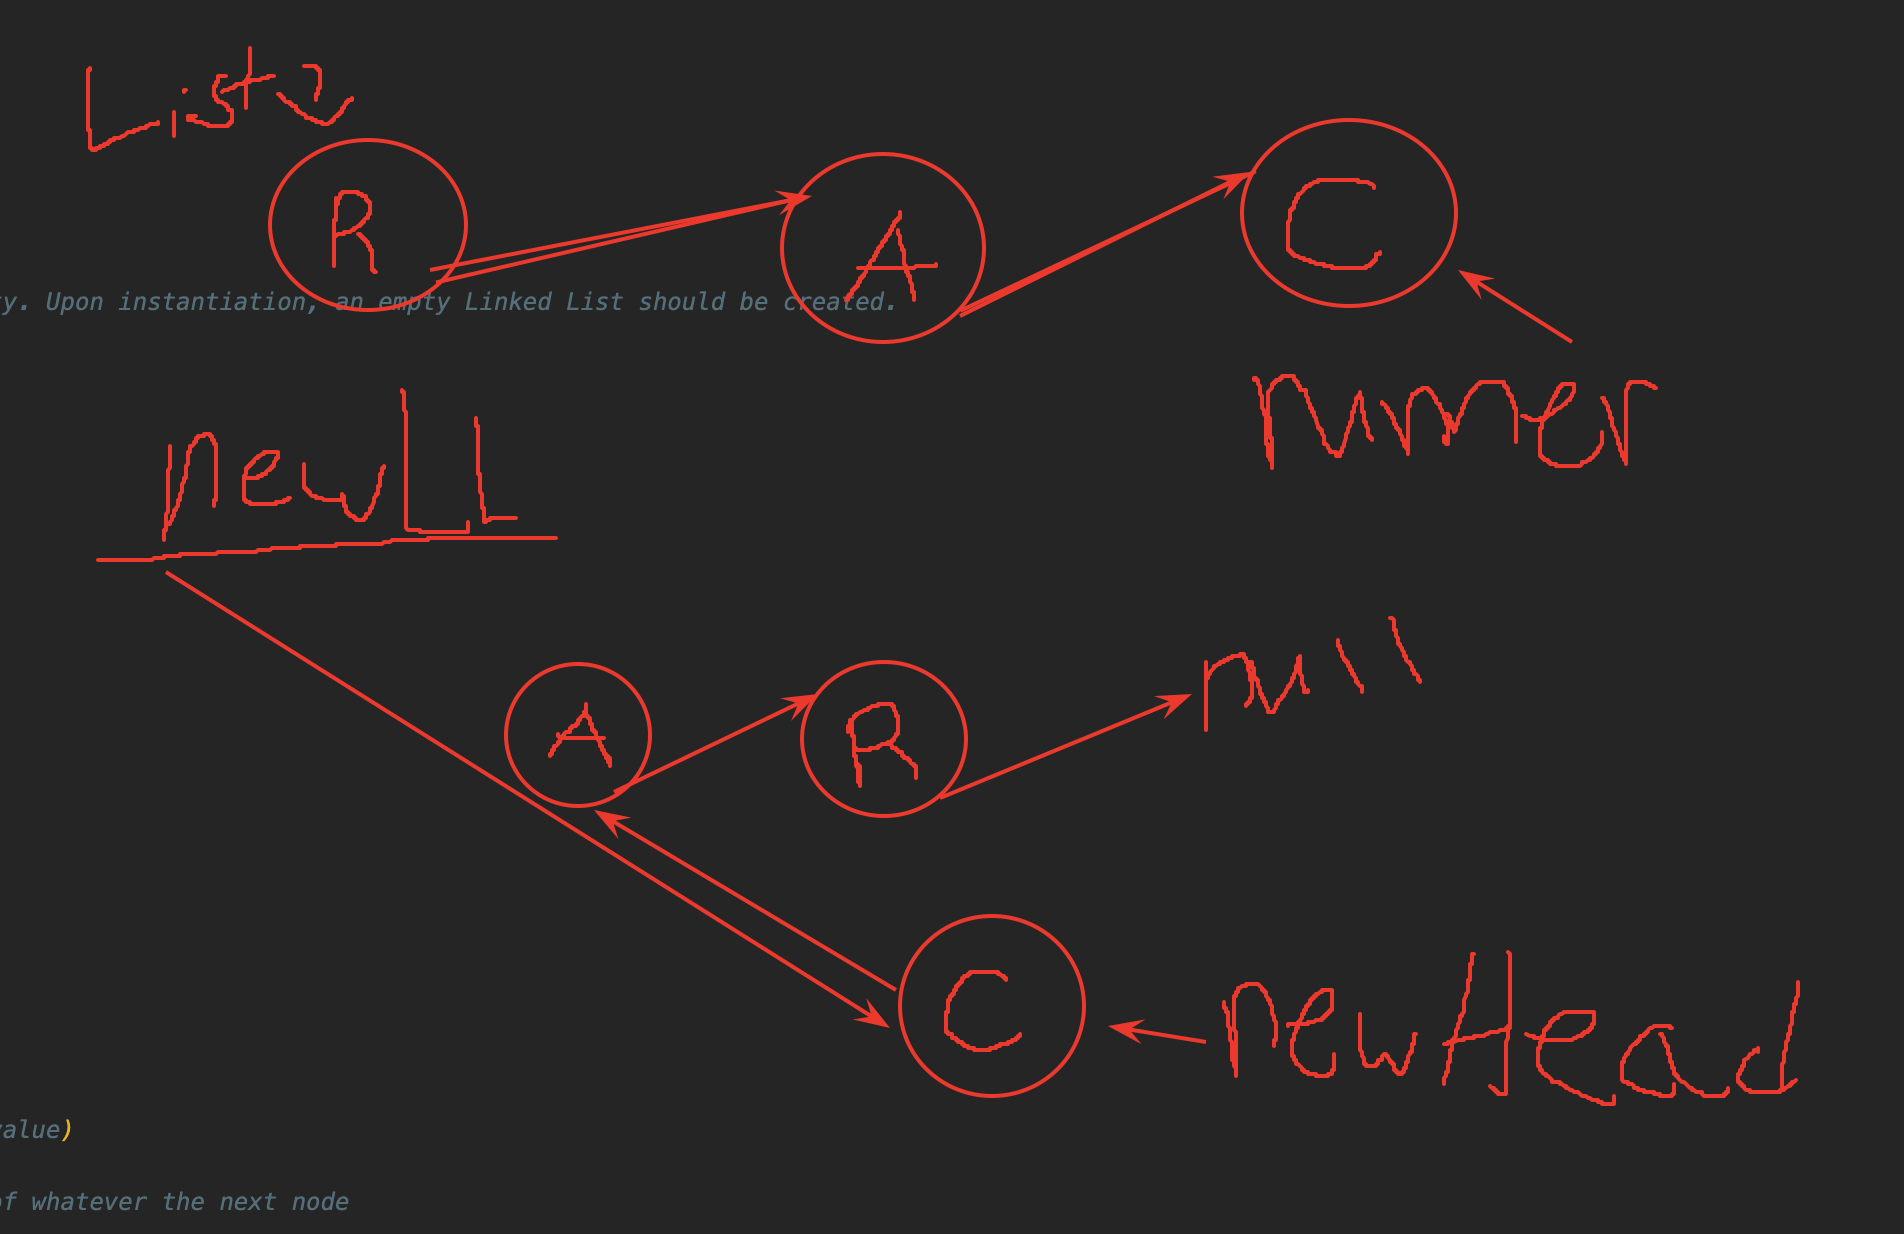 List2
R
A
C
y. Upon instantiation, an empty Linked List should be created.
runner
newLL
A
R
null
C
newHead
value)
of whatever the next node